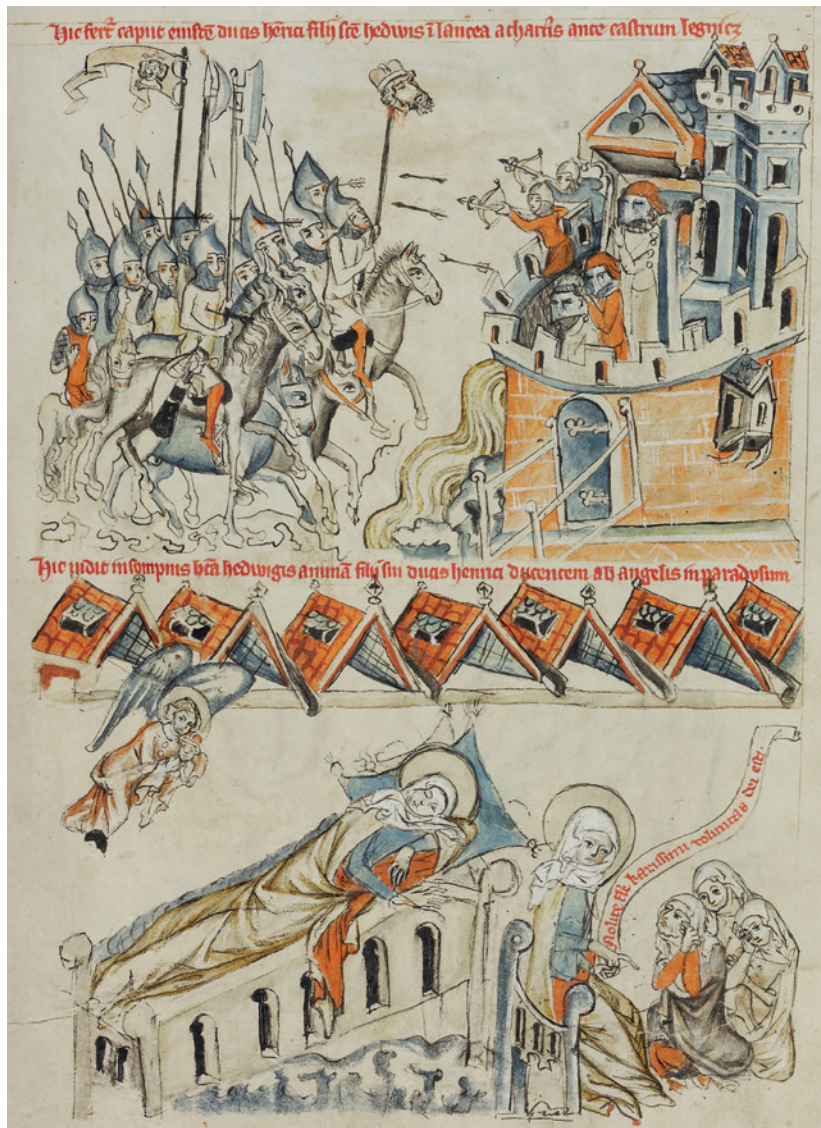 Hic fert᷑ caput eiusdē ducis hērici filij scē hedwis ī lancea a thartris ante castrum legnicz
Hic vidit in sompnis btā hedwigis animā filij sui ducis henrici ducentem ab angelis in paradysum
Nolite fle karissimi voluntas dei est.